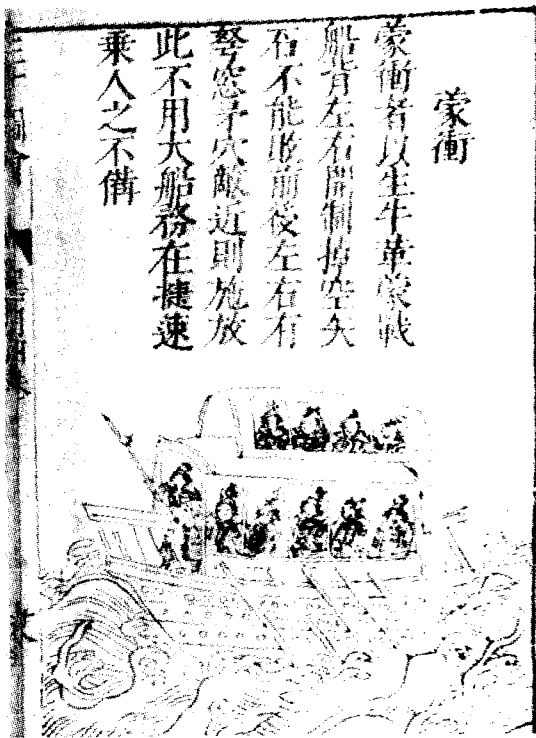 蒙衝
蒙衝者以生牛革蒙戰
船背左右開制掉空矢
石不能敗前後左右有
弩窓矛穴敵近則施放
此不用大船務在捷速
乗人之不僃
三才圖會
器用四卷